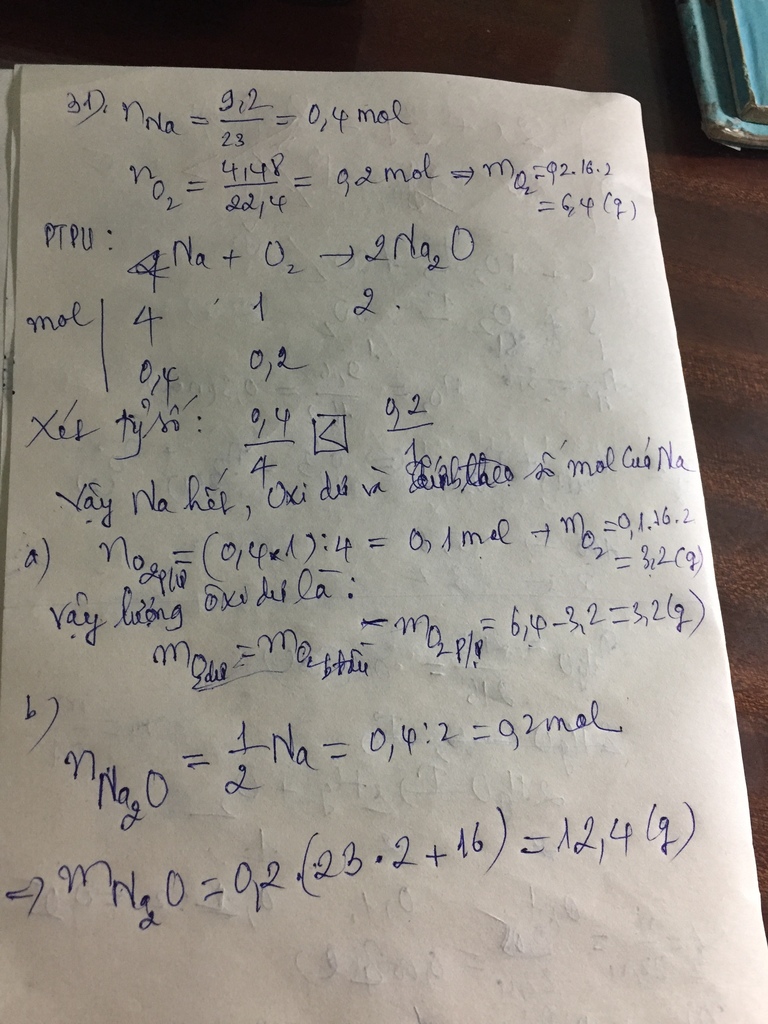 31). n Na = 9,2/23 = 0,4 mol
n O2 = 4,48/22,4 = 0,2 mol => m O2 = 0,2.16.2
= 6,4 (g)
PTPU : 4Na + O2 → 2Na2O
mol | 4 1 2.
0,4 0,2
Xét tỷ số: 0,4/4 < 0,2/1
Vậy Na hết, Oxi dư và tính theo số mol của Na
a) n O2 p/ứ = (0,4x1) : 4 = 0,1 mol → m O2 = 0,1.16.2
= 3,2 (g)
Vậy lượng ôxi dư là:
m O2 dư = m O2 b.đầu - m O2 p/ứ = 6,4 - 3,2 = 3,2 (g)
b)
n Na2O = 1/2 Na = 0,4 : 2 = 0,2 mol
=> m Na2O = 0,2.(23.2 + 16) = 12,4 (g)